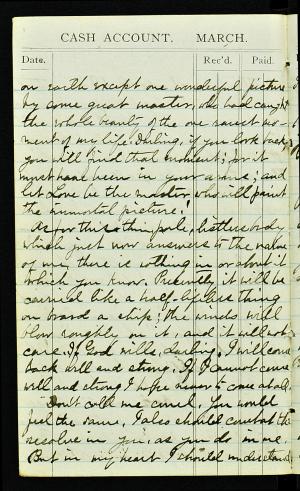 CASH ACCOUNT. MARCH.
Date. Rec'd. Paid.
on earth except one wonderful picture
by some great master, who had caught
the whole beauty of the one sweet mo-
ment of my life. Darling, if you look back
you will find that moment; for it
must have been in your arms; and
let Love be the master who will paint
the immortal picture!
As for this thin, pale, listless body
which just now answers to the name
of me, there is nothing in or about it
which you know. Presently it will be
carried like a half-lifeless thing
on board a ship; the winds will
blow roughly on it, and it will not
care. If God wills, darling, I will come
back well and strong. If I cannot come
well and strong I hope never to come at all.
Don't call me cruel. You would
feel the same. I also should combat the
resolve in you, as you do in me.
But in my heart I should understand.